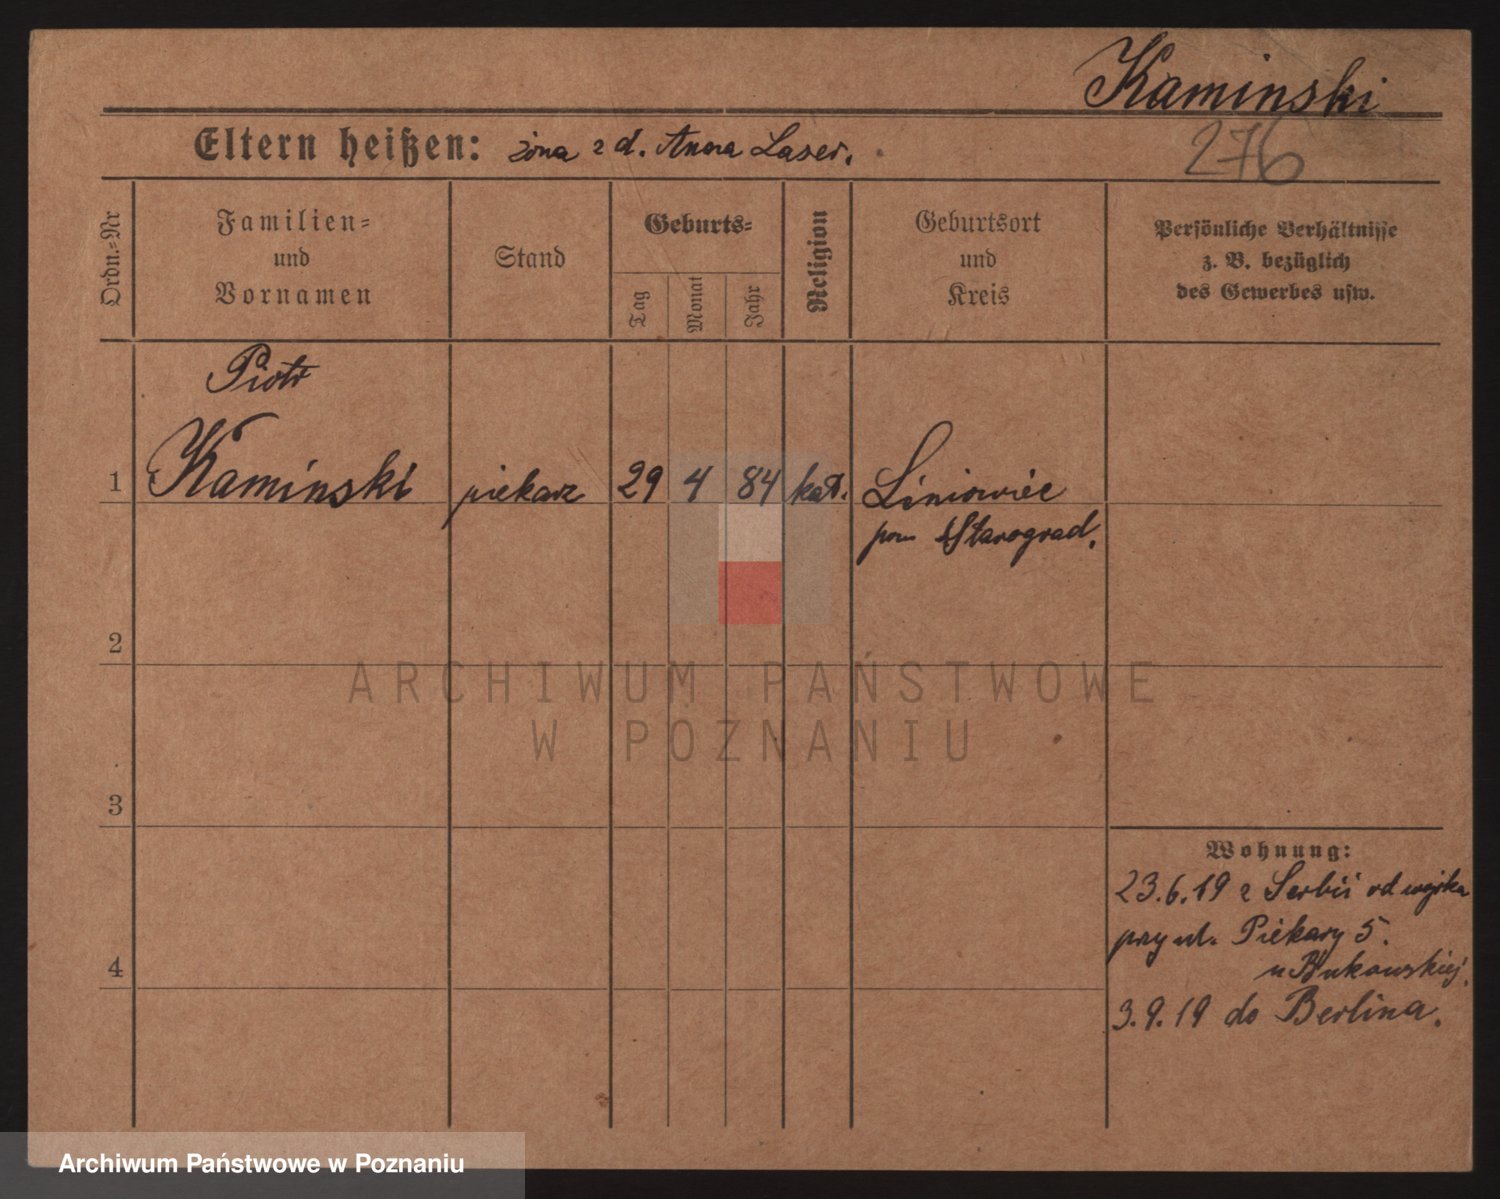 Kaminski
276
Eltern heißen: żona z d. Anna Laser.
Ordn.=Nr
Familien=
und
Vornamen
Stand
Geburts=
Tag
Monat
Jahr
Religion
Geburtsort
und
Kreis
Persönliche Verhältnisse
z. B. bezüglich
des Gewerbes usw.
Piotr
1 Kaminski piekarz 29 4 84 kat. Liniowiec
pow Starograd.
2
3
4
ARCHIWUM PAŃSTWOWE
W POZNANIU
Wohnung:
23.6.19 z Serbii od wojska
przy ul. Piekary 5.
u Bukowskiej.
3.9.19 do Berlina.
Archiwum Państwowe w Poznaniu